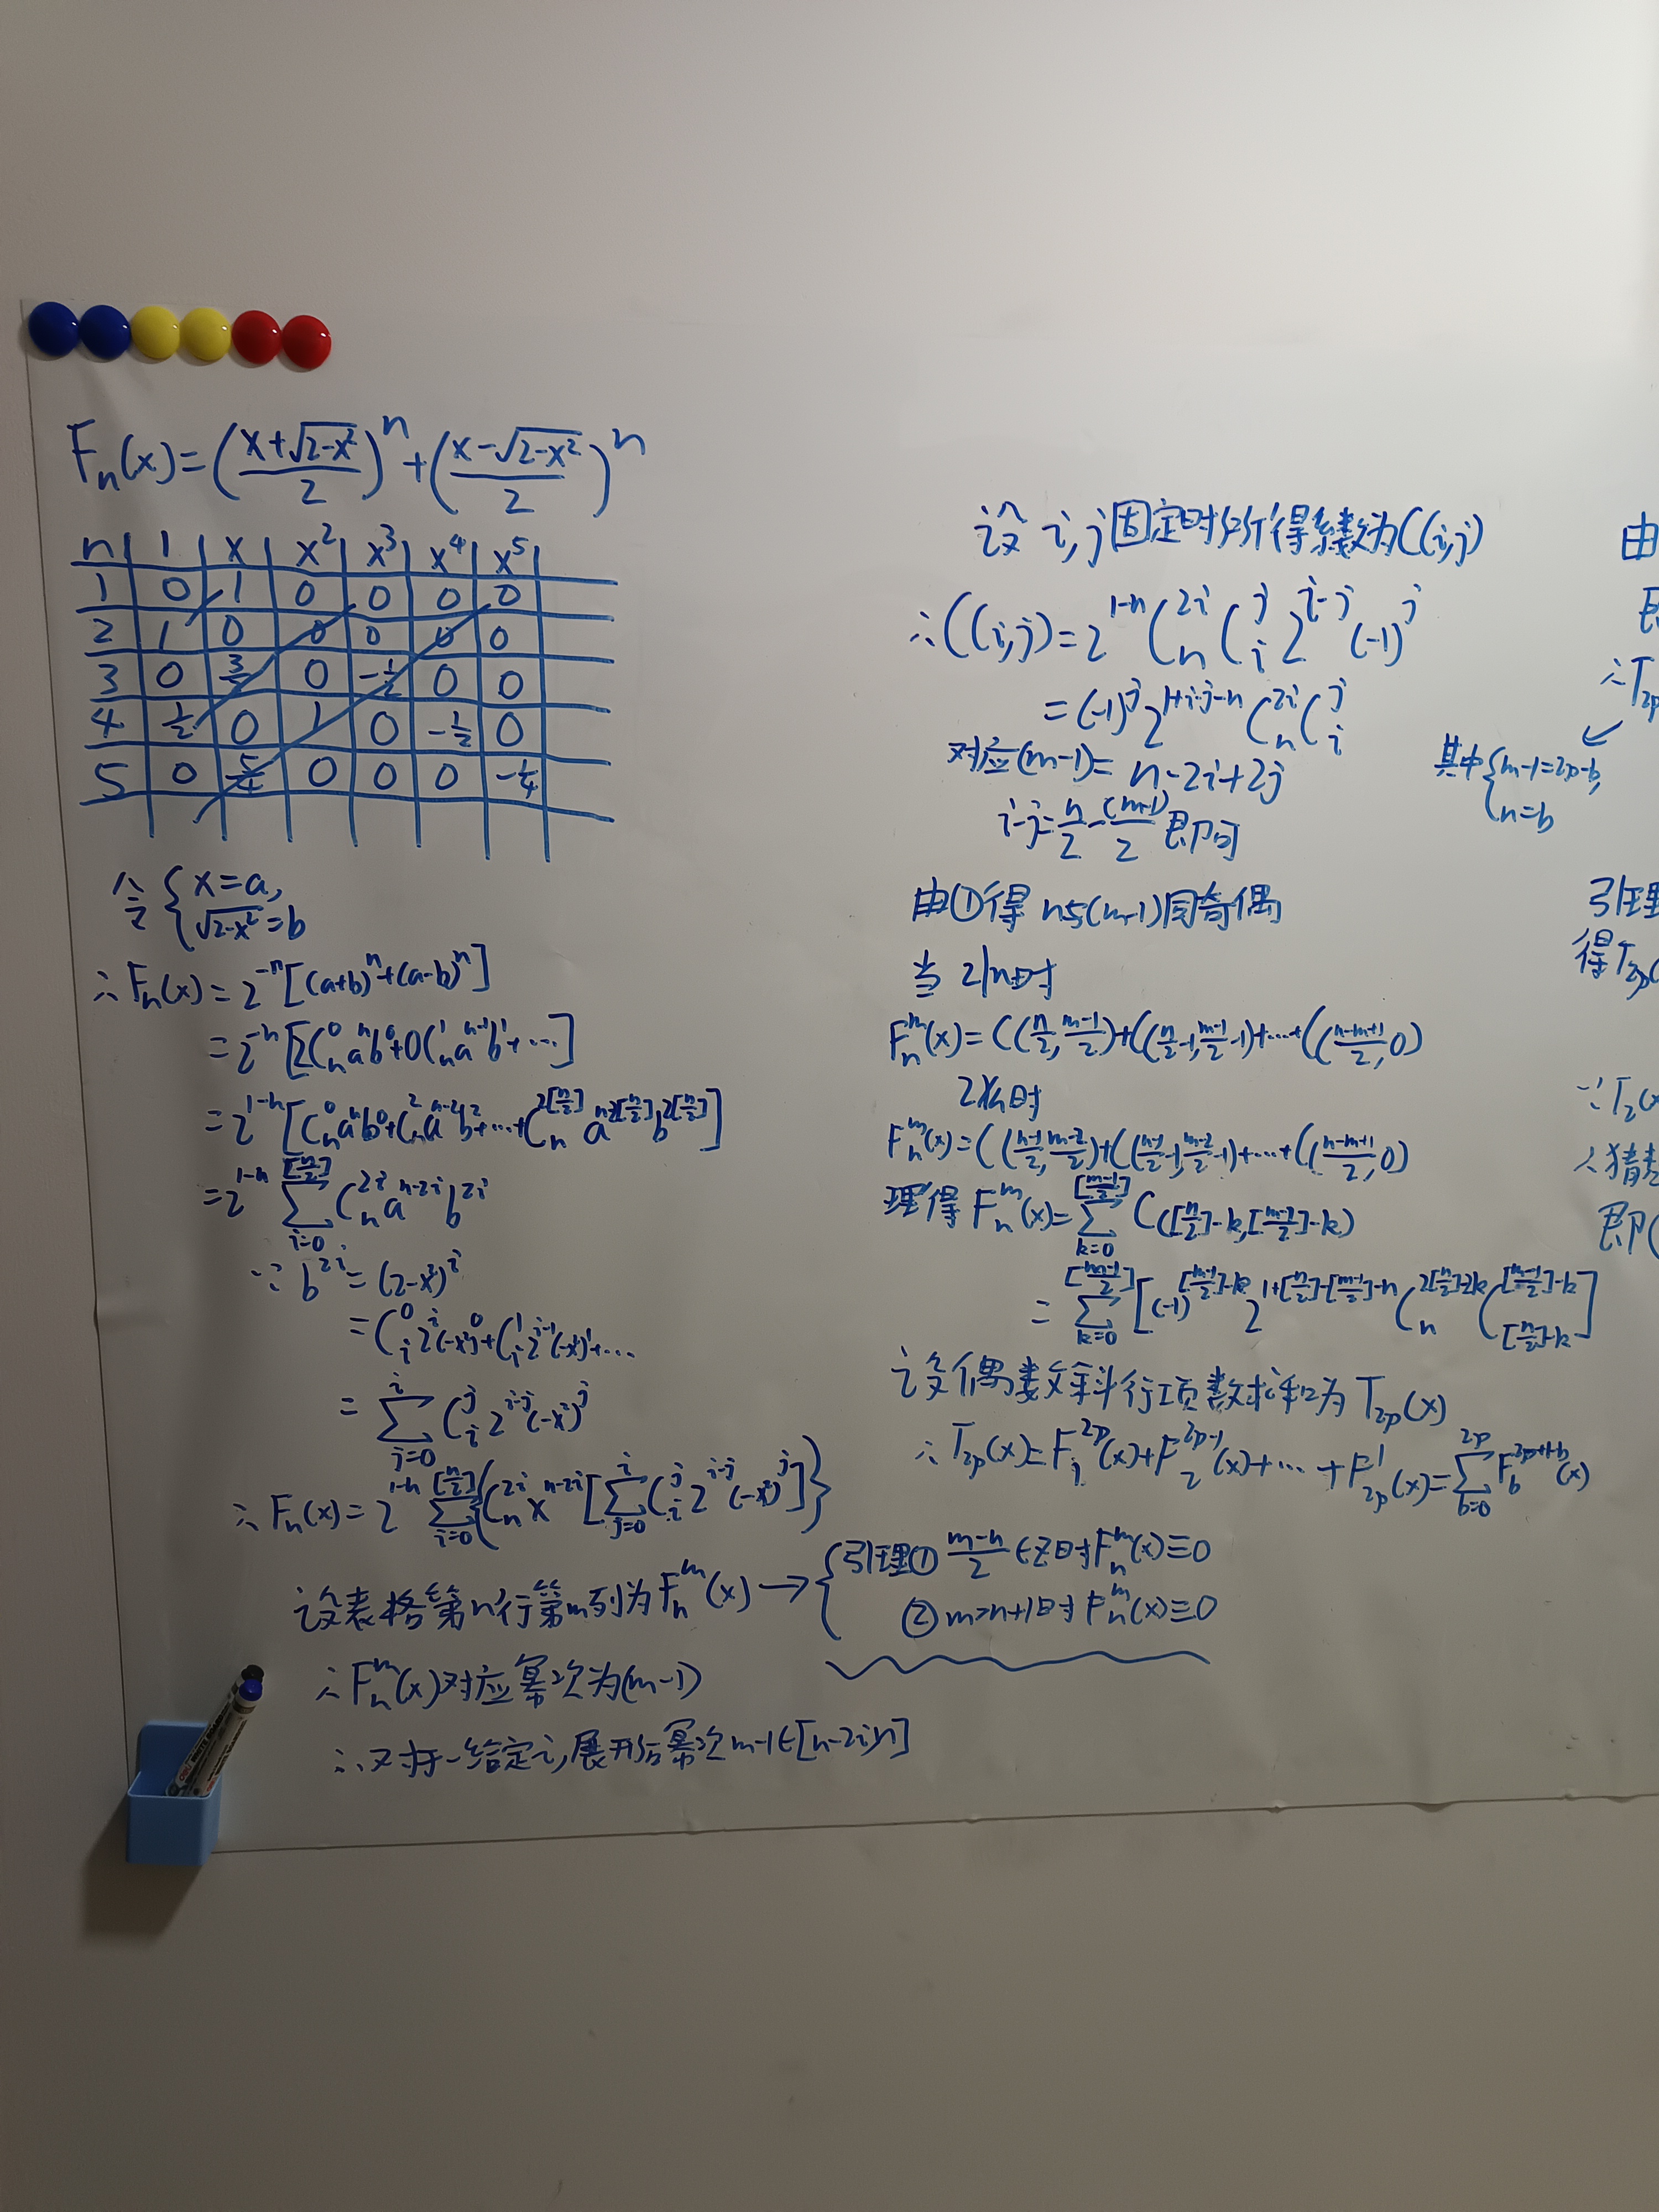 F_n(x)=((x+√(2-x²))/2)^n+((x-√(2-x²))/2)^n
n | 1 | x | x² | x³ | x⁴ | x⁵
1 | 0 | 1 | 0 | 0 | 0 | 0
2 | 1 | 0 | 0 | 0 | 0 | 0
3 | 0 | 3/2 | 0 | -1/2 | 0 | 0
4 | 1/2 | 0 | 1 | 0 | -1/2 | 0
5 | 0 | 5/4 | 0 | 0 | 0 | -1/4
令{x=a,
√(2-x²)=b
∴F_n(x)=2^{-n}[(a+b)^n+(a-b)^n]
=2^{-n}[2C_n^0a^nb^0+0C_n^1a^{n-1}b^1+…]
=2^{1-n}[C_n^0a^nb^0+C_n^2a^{n-2}b^2+…+C_n^{2[n/2]}a^{n-2[n/2]}b^{2[n/2]}]
=2^{1-n}∑_{i=0}^{[n/2]}C_n^{2i}a^{n-2i}b^{2i}
∵b^{2i}=(2-x²)^i
=C_i^0 2^i(-x²)^0+C_i^1 2^{i-1}(-x²)^1+…
=∑_{j=0}^{i}C_i^j 2^{i-j}(-x²)^j
∴F_n(x)=2^{1-n}∑_{i=0}^{[n/2]}{C_n^{2i}x^{n-2i}[∑_{j=0}^{i}C_i^j 2^{i-j}(-x²)^j]}
设表格第n行第m列为F_n^m(x)→{引理① (m-n)/2∈Z时F_n^m(x)≡0
②m>n+1时F_n^m(x)≡0
∴F_n^m(x)对应幂次为(m-1)
∴对于一给定i,展开后幂次m-1∈[n-2i,n]
设i,j固定时所得系数为C(i,j)
∴C(i,j)=2^{1-n}C_n^{2i}C_i^j 2^{i-j}(-1)^j
=(-1)^j 2^{1+i-j-n}C_n^{2i}C_i^j
对应(m-1)=n-2i+2j
i-j=n/2-(m-1)/2即可
由①得n与(m-1)同奇偶
当2|n时
F_n^m(x)=C(n/2,(m-1)/2)+C(n/2-1,(m-1)/2-1)+…+C((n-m+1)/2,0)
2∤n时
F_n^m(x)=C((n-1)/2,(m-2)/2)+C((n-1)/2-1,(m-2)/2-1)+…+C((n-m+1)/2,0)
理得F_n^m(x)=∑_{k=0}^{[(m-1)/2]}C([n/2]-k,[(m-1)/2]-k)
=∑_{k=0}^{[(m-1)/2]}[(-1)^{[(m-1)/2]-k}2^{1+[n/2]-[(m-1)/2]-n}C_n^{2[n/2]-2k}C_{[n/2]-k}^{[(m-1)/2]-k}]
设偶数斜行项数求和为T_{2p}(x)
∴T_{2p}(x)=F_1^{2p}(x)+F_2^{2p-1}(x)+…+F_{2p}^1(x)=∑_{b=0}^{2p}F_b^{2p+1-b}(x)
由
∴T_{2p}
其中{m-1=2p-b,
n=b
引理
得T_{2p}(
∵T_2(x
∴猜
即(